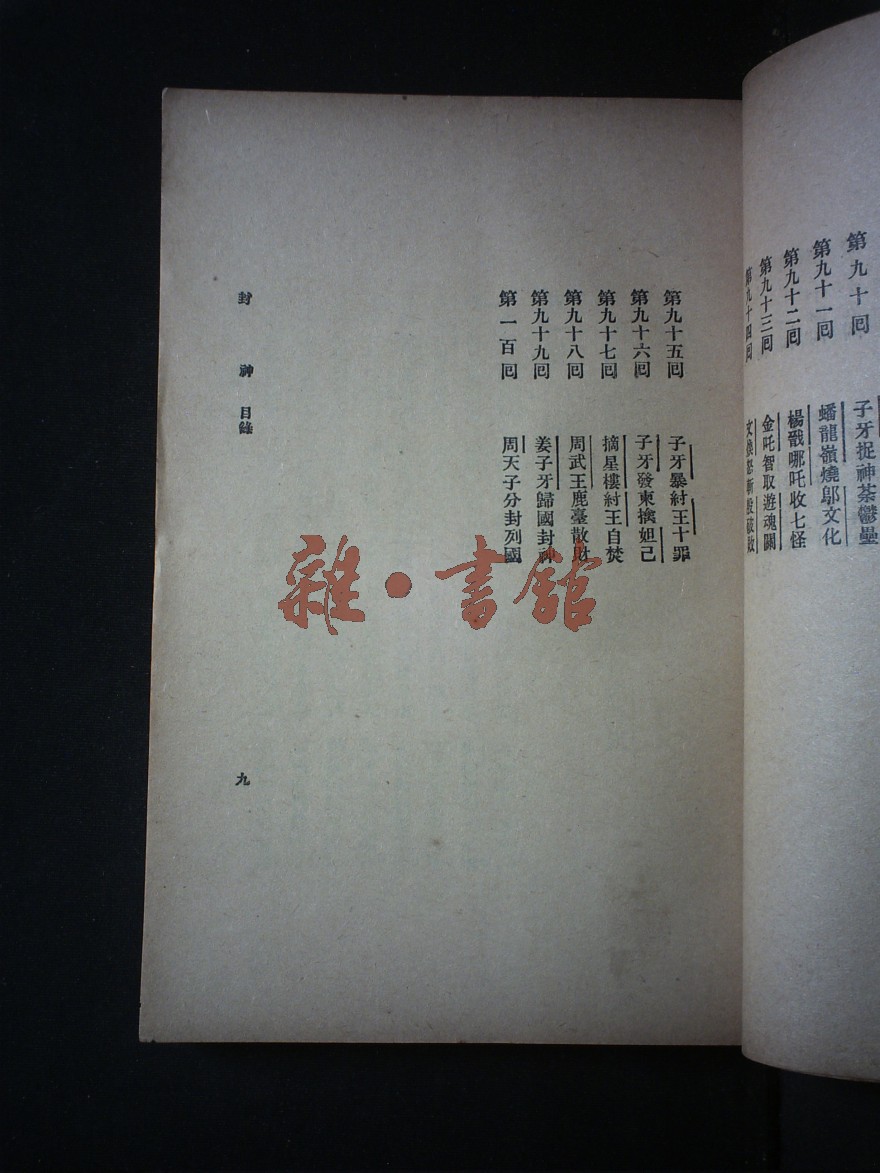 第九十回 子牙捉神荼鬱壘
第九十一回 蟠龍嶺燒鄔文化
第九十二回 楊戩哪吒收七怪
第九十三回 金吒智取遊魂關
第九十四回 文煥怒斬殷破敗
第九十五回 子牙暴紂王十罪
第九十六回 子牙發柬擒妲己
第九十七回 摘星樓紂王自焚
第九十八回 周武王鹿臺散財
第九十九回 姜子牙歸國封神
第一百回 周天子分封列國
封神 目錄
九
雜·書館